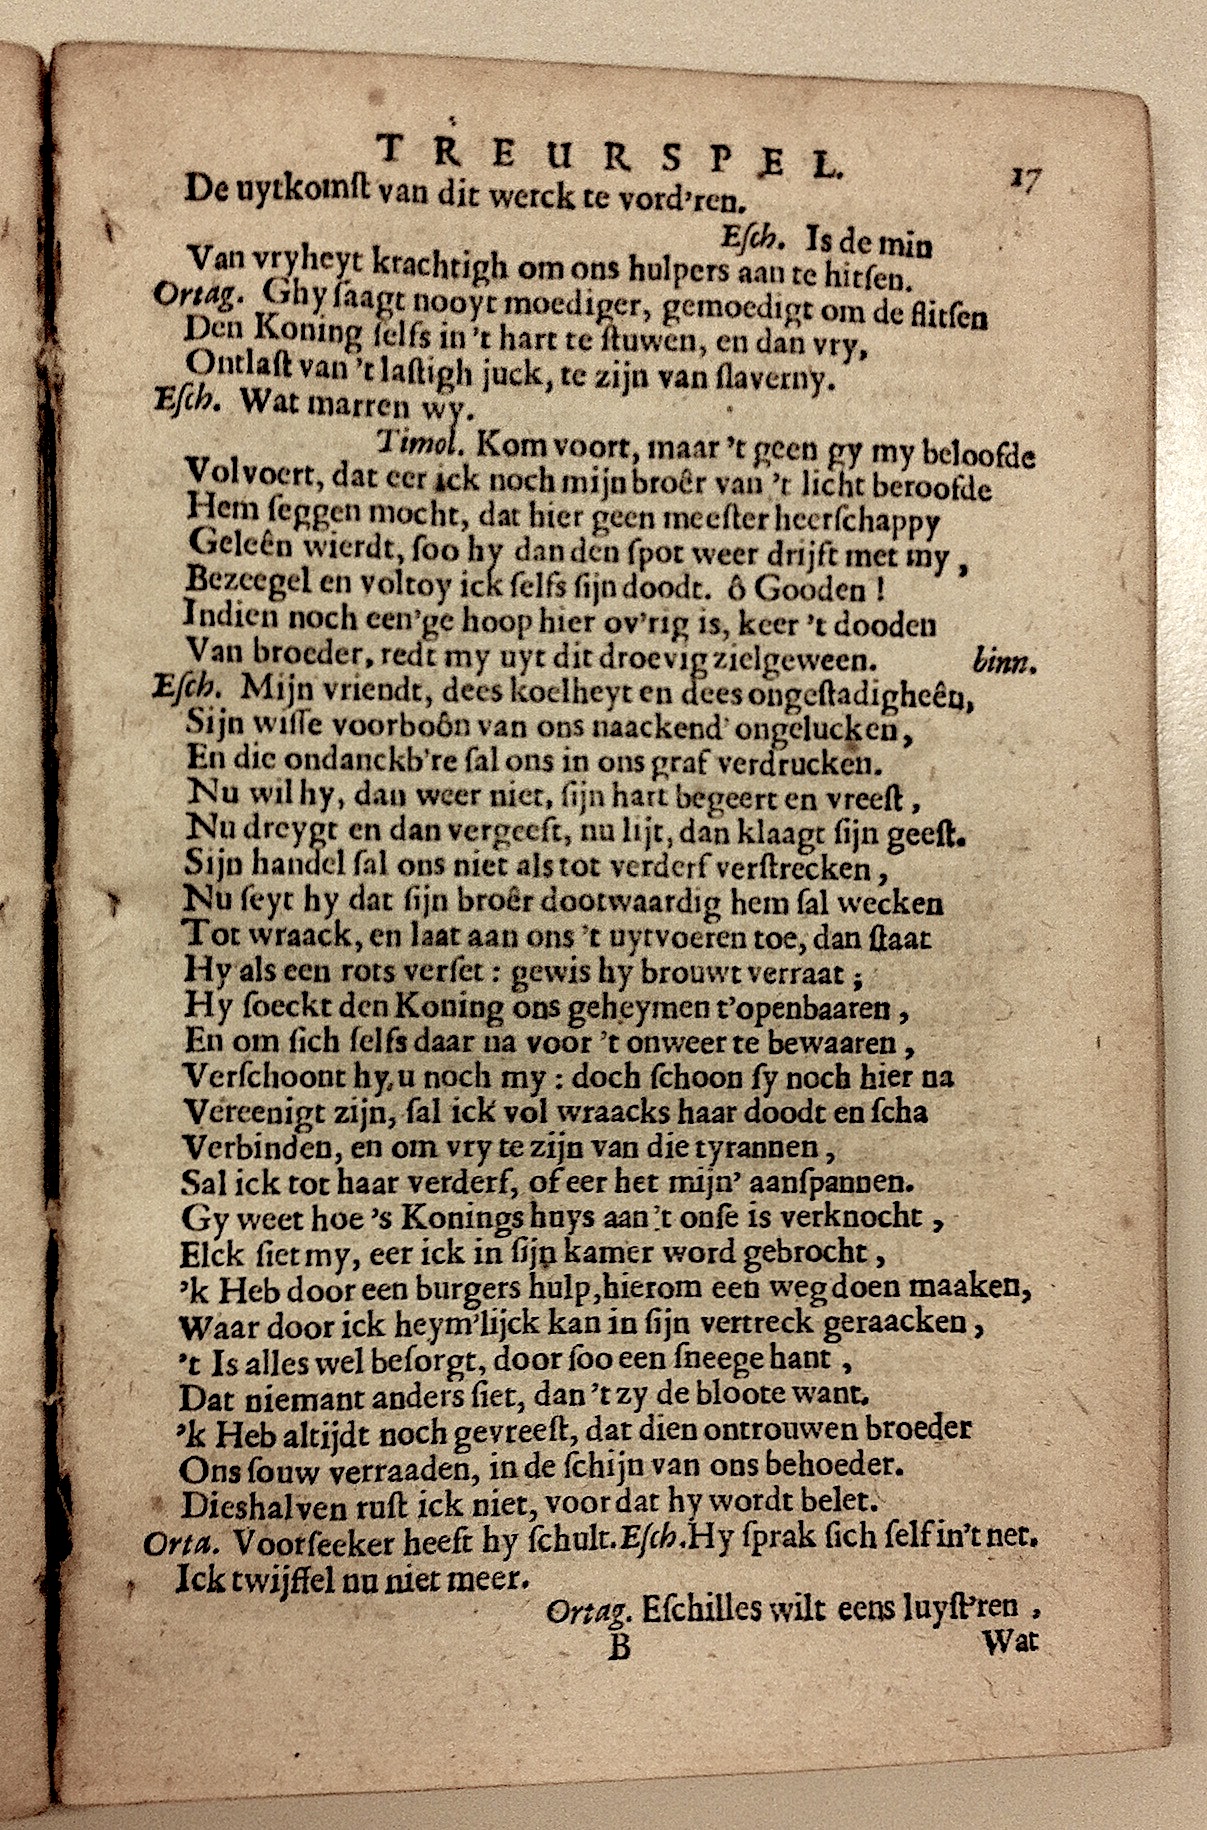 TREURSPEL. 17
De uytkomſt van dit werck te vord'ren.
Eſch. Is de min
Van vryheyt krachtigh om ons hulpers aan te hitſen.
Ortag. Ghy ſaagt nooyt moediger, gemoedigt om de flitſen
Den Koning ſelfs in 't hart te ſtuwen, en dan vry,
Ontlaſt van 't laſtigh juck, te zijn van ſlaverny.
Eſch. Wat marren wy.
Timol. Kom voort, maar 't geen gy my beloofde
Volvoert, dat eer ick noch mijn broêr van 't licht beroofde
Hem ſeggen mocht, dat hier geen meeſter heerſchappy
Geleên wierdt, ſoo hy dan den ſpot weer drijft met my,
Bezeegel en voltoy ick ſelfs ſijn doodt. ô Gooden!
Indien noch een'ge hoop hier ov'rig is, keer 't dooden
Van broeder, redt my uyt dit droevig zielgeween. binn.
Eſch. Mijn vriendt, dees koelheyt en dees ongeſtadigheên,
Sijn wiſſe voorboôn van ons naackend' ongelucken,
En die ondanckb're ſal ons in ons graf verdrucken.
Nu wil hy, dan weer niet, ſijn hart begeert en vreeſt,
Nu dreygt en dan vergeeft, nu lijt, dan klaagt ſijn geeſt.
Sijn handel ſal ons niet als tot verderf verſtrecken,
Nu ſeyt hy dat ſijn broêr dootwaardig hem ſal wecken
Tot wraack, en laat aan ons 't uytvoeren toe, dan ſtaat
Hy als een rots verſet: gewis hy brouwt verraat;
Hy ſoeckt den Koning ons geheymen t'openbaaren,
En om ſich ſelfs daar na voor 't onweer te bewaaren,
Verſchoont hy, u noch my: doch ſchoon ſy noch hier na
Vereenigt zijn, ſal ick vol wraacks haar doodt en ſcha
Verbinden, en om vry te zijn van die tyrannen,
Sal ick tot haar verderf, of eer het mijn' aanſpannen.
Gy weet hoe 's Konings huys aan 't onſe is verknocht,
Elck ſiet my, eer ick in ſijn kamer word gebrocht,
'k Heb door een burgers hulp, hierom een weg doen maaken,
Waar door ick heym'lijck kan in ſijn vertreck geraacken,
't Is alles wel beſorgt, door ſoo een ſneege hant,
Dat niemant anders ſiet, dan 't zy de bloote want.
'k Heb altijdt noch gevreeſt, dat dien ontrouwen broeder
Ons ſouw verraaden, in de ſchijn van ons behoeder.
Dieshalven ruſt ick niet, voor dat hy wordt belet.
Orta. Voorſeeker heeft hy ſchult. Eſch. Hy ſprak ſich ſelf in't net.
Ick twijffel nu niet meer.
Ortag. Eſchilles wilt eens luyſt'ren,
B Wat